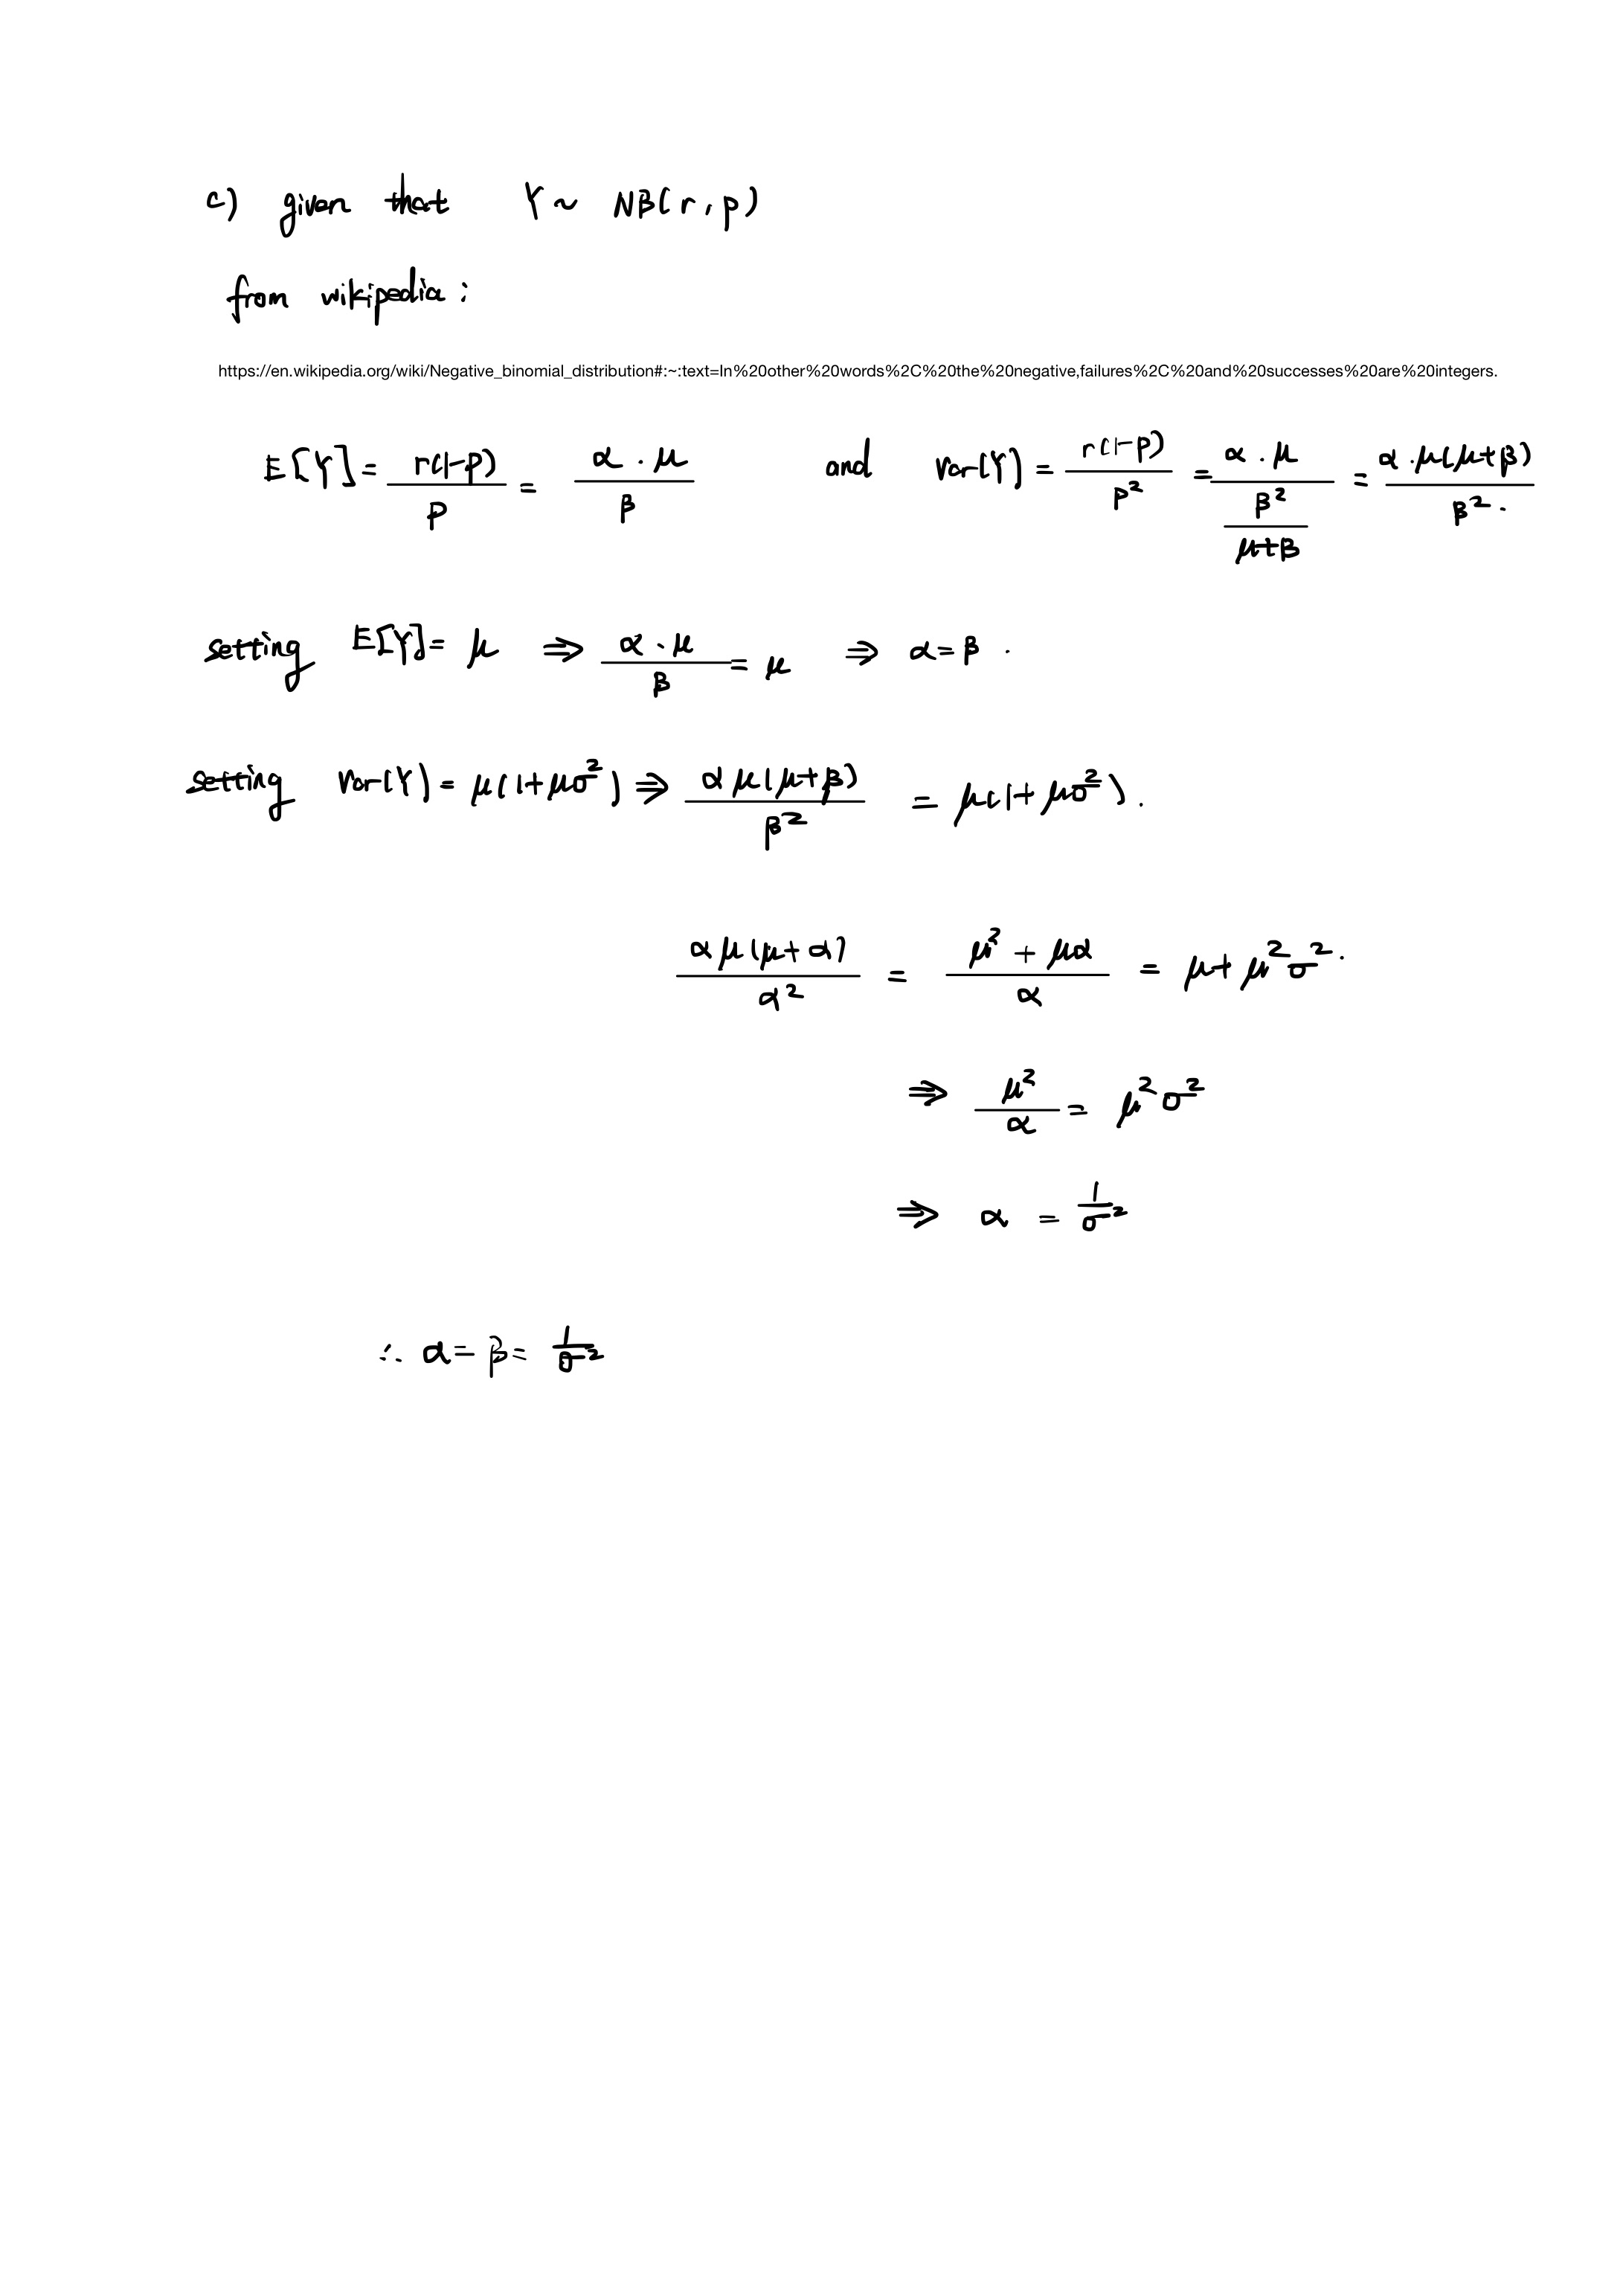 c) given that Y ~ NB(r, p)
from wikipedia :
https://en.wikipedia.org/wiki/Negative_binomial_distribution#:~:text=In%20other%20words%2C%20the%20negative,failures%2C%20and%20successes%20are%20integers.
E[Y] = r(1-p)/p = α·μ/β and Var(Y) = r(1-p)/p² = α·μ/(β²/(μ+β)) = α·μ(μ+β)/β² .
setting E[Y] = μ ⇒ α·μ/β = μ ⇒ α = β .
setting Var(Y) = μ(1+μσ²) ⇒ αμ(μ+β)/β² = μ(1+μσ²) .
αμ(μ+α)/α² = (μ²+μα)/α = μ+μ²σ² .
⇒ μ²/α = μ²σ²
⇒ α = 1/σ²
∴ α = β = 1/σ²